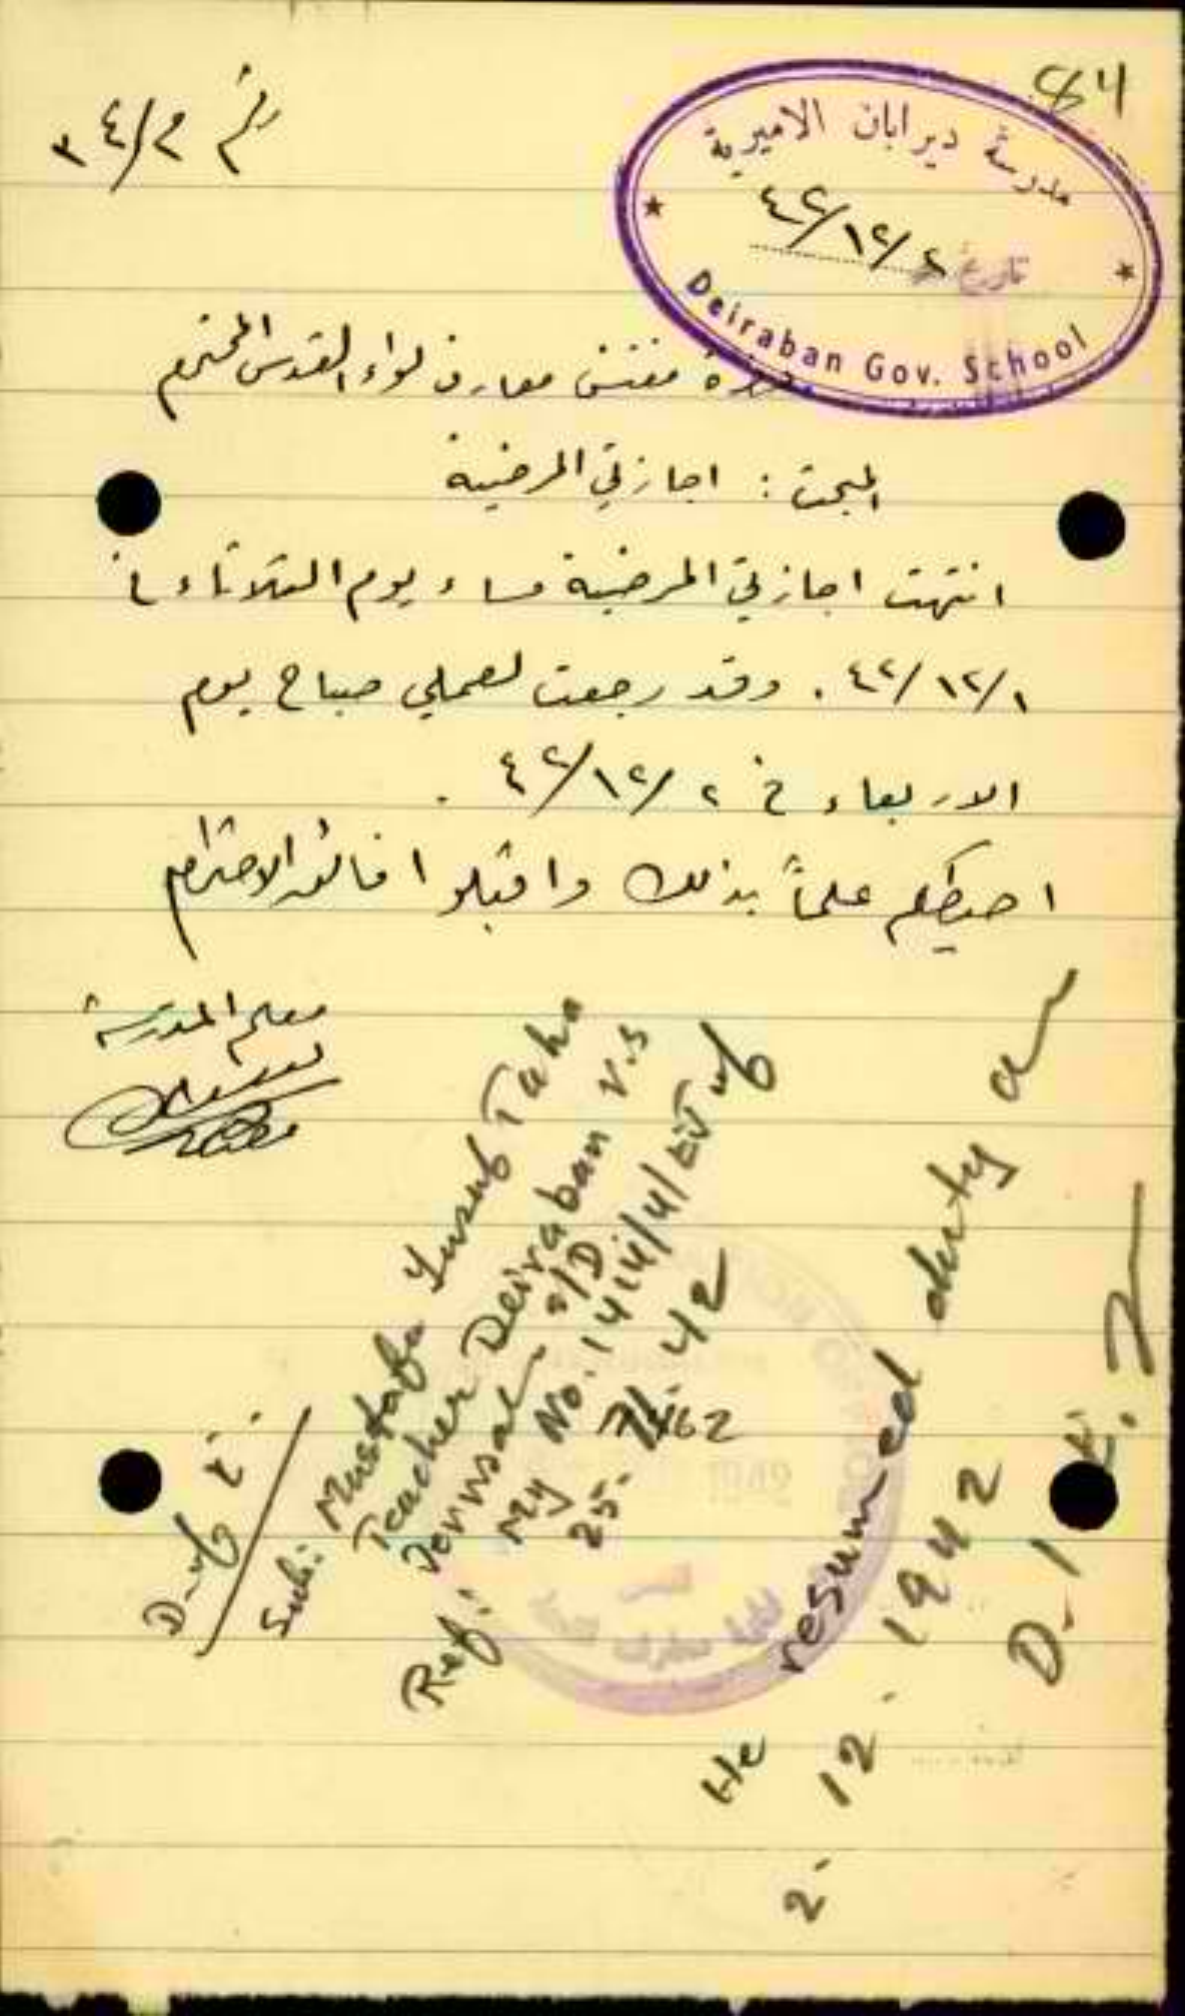 84
رقم م/٣٤
مدرسة ديرابان الاميرية
تاريخ ٤٢/١٢/٢
Deiraban Gov. School
حضرة مفتش معارف لواء القدس المحترم
المبحث : اجازتي المرضية
انتهت اجازتي المرضية مساء يوم الثلاثاء في
٤٢/١٢/١ . وقد رجعت لعملي صباح يوم
الاربعاء في ٤٢/١٢/٢ .
احيطكم علماً بذلك واقبلوا فائق الاحترام
معلم المدرسة
Sub: Mustafa Yusuf Taha
Teacher Deiraban V.S
Jerusalem S/D
Ref: My No.
25. 11. 42
He resumed duty on
2. 12. 1942